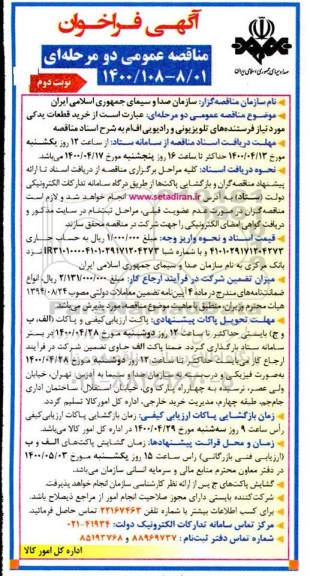 آگهی فراخوان
مناقصه عمومی دو مرحله‌ای
۱۴۰۰/۱۰۸-۸/۰۱
نوبت دوم
صدا و سیمای جمهوری اسلامی ایران
نام سازمان مناقصه‌گزار: سازمان صدا و سیمای جمهوری اسلامی ایران
موضوع مناقصه عمومی دو مرحله‌ای: عبارت است از خرید قطعات یدکی
مورد نیاز فرستنده‌های تلویزیونی و رادیویی اقلام به شرح اسناد مناقصه
مهلت دریافت اسناد مناقصه از سامانه ستاد: از ساعت ۱۲ روز یکشنبه
مورخ ۱۴۰۰/۰۴/۱۳ حداکثر تا ساعت ۱۶ روز پنجشنبه مورخ ۱۴۰۰/۰۴/۱۷ می‌باشد.
نحوه دریافت اسناد: کلیه مراحل برگزاری مناقصه از دریافت اسناد تا ارائه
پیشنهاد مناقصه‌گران و بازگشایی پاکت‌ها از طریق درگاه سامانه تدارکات الکترونیکی
دولت (ستاد) به آدرس www.setadiran.ir انجام خواهد شد و لازم است
مناقصه‌گران در صورت عدم عضویت قبلی، مراحل ثبت‌نام در سایت مذکور و
دریافت گواهی امضای الکترونیکی را جهت شرکت در مناقصه محقق سازند
قیمت اسناد و نحوه واریز وجه: مبلغ ۱/۰۰۰/۰۰۰ ریال به حساب جاری
۴۱۰۱۰۲۹۱۷۱۲۰۴۲۷۳ و با شماره شبا IR۳۴۰۱۰۰۰۰۴۱۰۱۰۲۹۱۷۱۲۰۴۲۷۳ نزد
بانک مرکزی به نام سازمان صدا و سیمای جمهوری اسلامی ایران
میزان تضمین شرکت در فرآیند ارجاع کار: مبلغ ۲/۱۳۱/۰۰۰/۰۰۰ ریال، انواع
ضمانت‌نامه‌های مندرج در ماده ۴ آیین‌نامه تضمین معاملات دولتی مصوب ۱۳۹۴/۰۸/۲۴
هیأت محترم وزیران منطبق با ماهیت موضوع مناقصه مورد پذیرش می‌باشد.
مهلت تحویل پاکات پیشنهادی: پاکت ارزیابی کیفی و پاکات (الف، ب
و ج) بایستی حداکثر تا ساعت ۱۲ روز دوشنبه مورخ ۱۴۰۰/۰۴/۲۸ در بستر
سامانه ستاد بارگذاری گردد. ضمنا پاکت الف حاوی تضمین شرکت در فرآیند
ارجاع کار می‌بایست حداکثر تا ساعت ۱۲ روز دوشنبه مورخ ۱۴۰۰/۰۴/۲۸
به‌صورت فیزیکی و دربسته به سازمان صدا و سیما به آدرس: تهران، خیابان
ولی عصر، نرسیده به چهارراه پارک وی، خیابان استقلال، ساختمان اداری
جام‌جم، طبقه چهارم، مدیریت خرید خارجی، اداره کل امور کالا تسلیم گردد.
زمان بازگشایی پاکات ارزیابی کیفی: زمان بازگشایی پاکات ارزیابی کیفی
رأس ساعت ۹ روز سه‌شنبه مورخ ۱۴۰۰/۰۴/۲۹ در اداره کل امور کالا می‌باشد.
زمان و محل قرائت پیشنهادها: زمان گشایش پاکت‌های الف و ب
(ارزیابی فنی بازرگانی) رأس ساعت ۱۵ روز یکشنبه مورخ ۱۴۰۰/۰۵/۰۳
در دفتر معاون محترم منابع مالی و سرمایه انسانی سازمان می‌باشد.
گشایش پاکت‌های ج پس از ارائه نظر کارشناسی سازمان انجام خواهد پذیرفت.
شرکت‌کننده بایستی دارای مجوز صلاحیت انجام امور از مراجع ذیصلاح باشد.
برای کسب اطلاعات بیشتر با شماره تلفن ۲۲۱۶۷۴۶۳ تماس حاصل فرمائید.
مرکز تماس سامانه تدارکات الکترونیک دولت: ۴۱۹۳۴-۰۲۱
شماره تماس دفتر ثبت‌نام: ۸۸۹۶۹۷۳۷ و ۸۵۱۹۳۷۶۸
اداره کل امور کالا